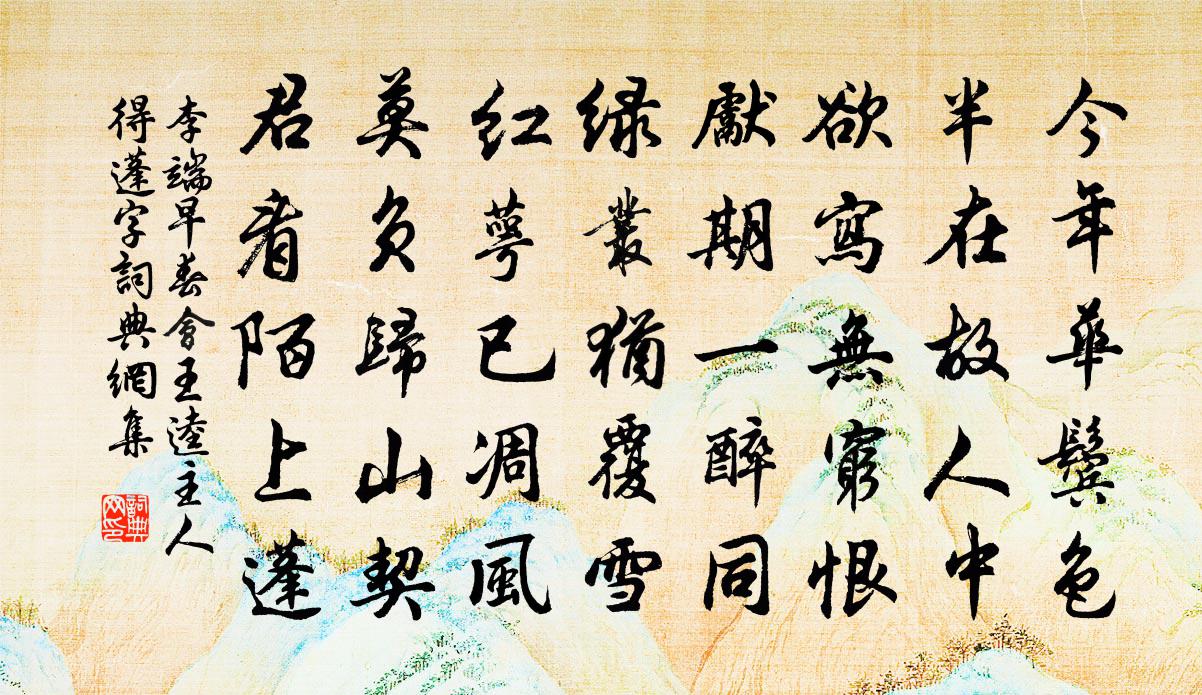 今年華鬢色
半在故人中
欲寫無窮恨
獻期一醉同
绿叢猶覆雪
红萼已凋風
莫負歸山契
君看陌上蓬
李端早春會王逵主人
得蓬字詞典網集
詞典
网印